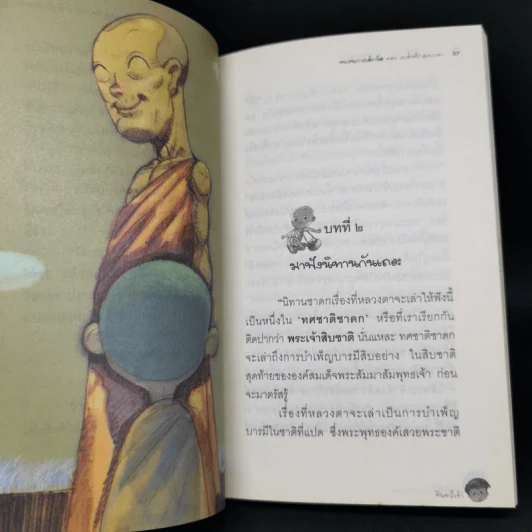 บทที่ ๒
มาฟังนิทานกันเถอะ
"นิทานชาดกเรื่องที่หลวงตาจะเล่าให้ฟังนี้
เป็นหนึ่งใน 'ทศชาติชาดก' หรือที่เราเรียกกัน
ติดปากว่า พระเจ้าสิบชาติ นั่นแหละ ทศชาติชาดก
จะเล่าถึงการบำเพ็ญบารมีสิบอย่าง ในสิบชาติ
สุดท้ายขององค์สมเด็จพระสัมมาสัมพุทธเจ้า ก่อน
จะมาตรัสรู้
เรื่องที่หลวงตาจะเล่าเป็นการบำเพ็ญ
บารมีในชาติที่แปด ซึ่งพระพุทธองค์เสวยพระชาติ